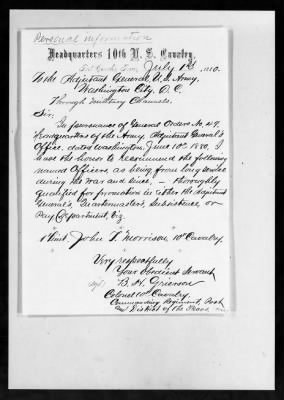 Personal information
Headquarters 10th U. S. Cavalry,
July 1st, 1880.
To the Adjutant General, U.S. Army,
Washington City, D.C.
Through military Channels.
Sir:
In pursuance of General Orders No. 49,
Headquarters of the Army, Adjutant General's
Office, dated Washington, June 10th 1880, I
have the honor to recommend the following
named Officers, as being, from long service
during the war and since, – thoroughly
qualified for promotion in either the Adjutant
General's, Quartermaster's, Subsistence, or
Pay Department, Viz.
1 Lieut. John T. Morrison 10" Cavalry.
Very respectfully
Your Obedient Servant
B. H. Grierson
Colonel 10" Cavalry,
Commanding Regiment, Post
and District of the Pecos